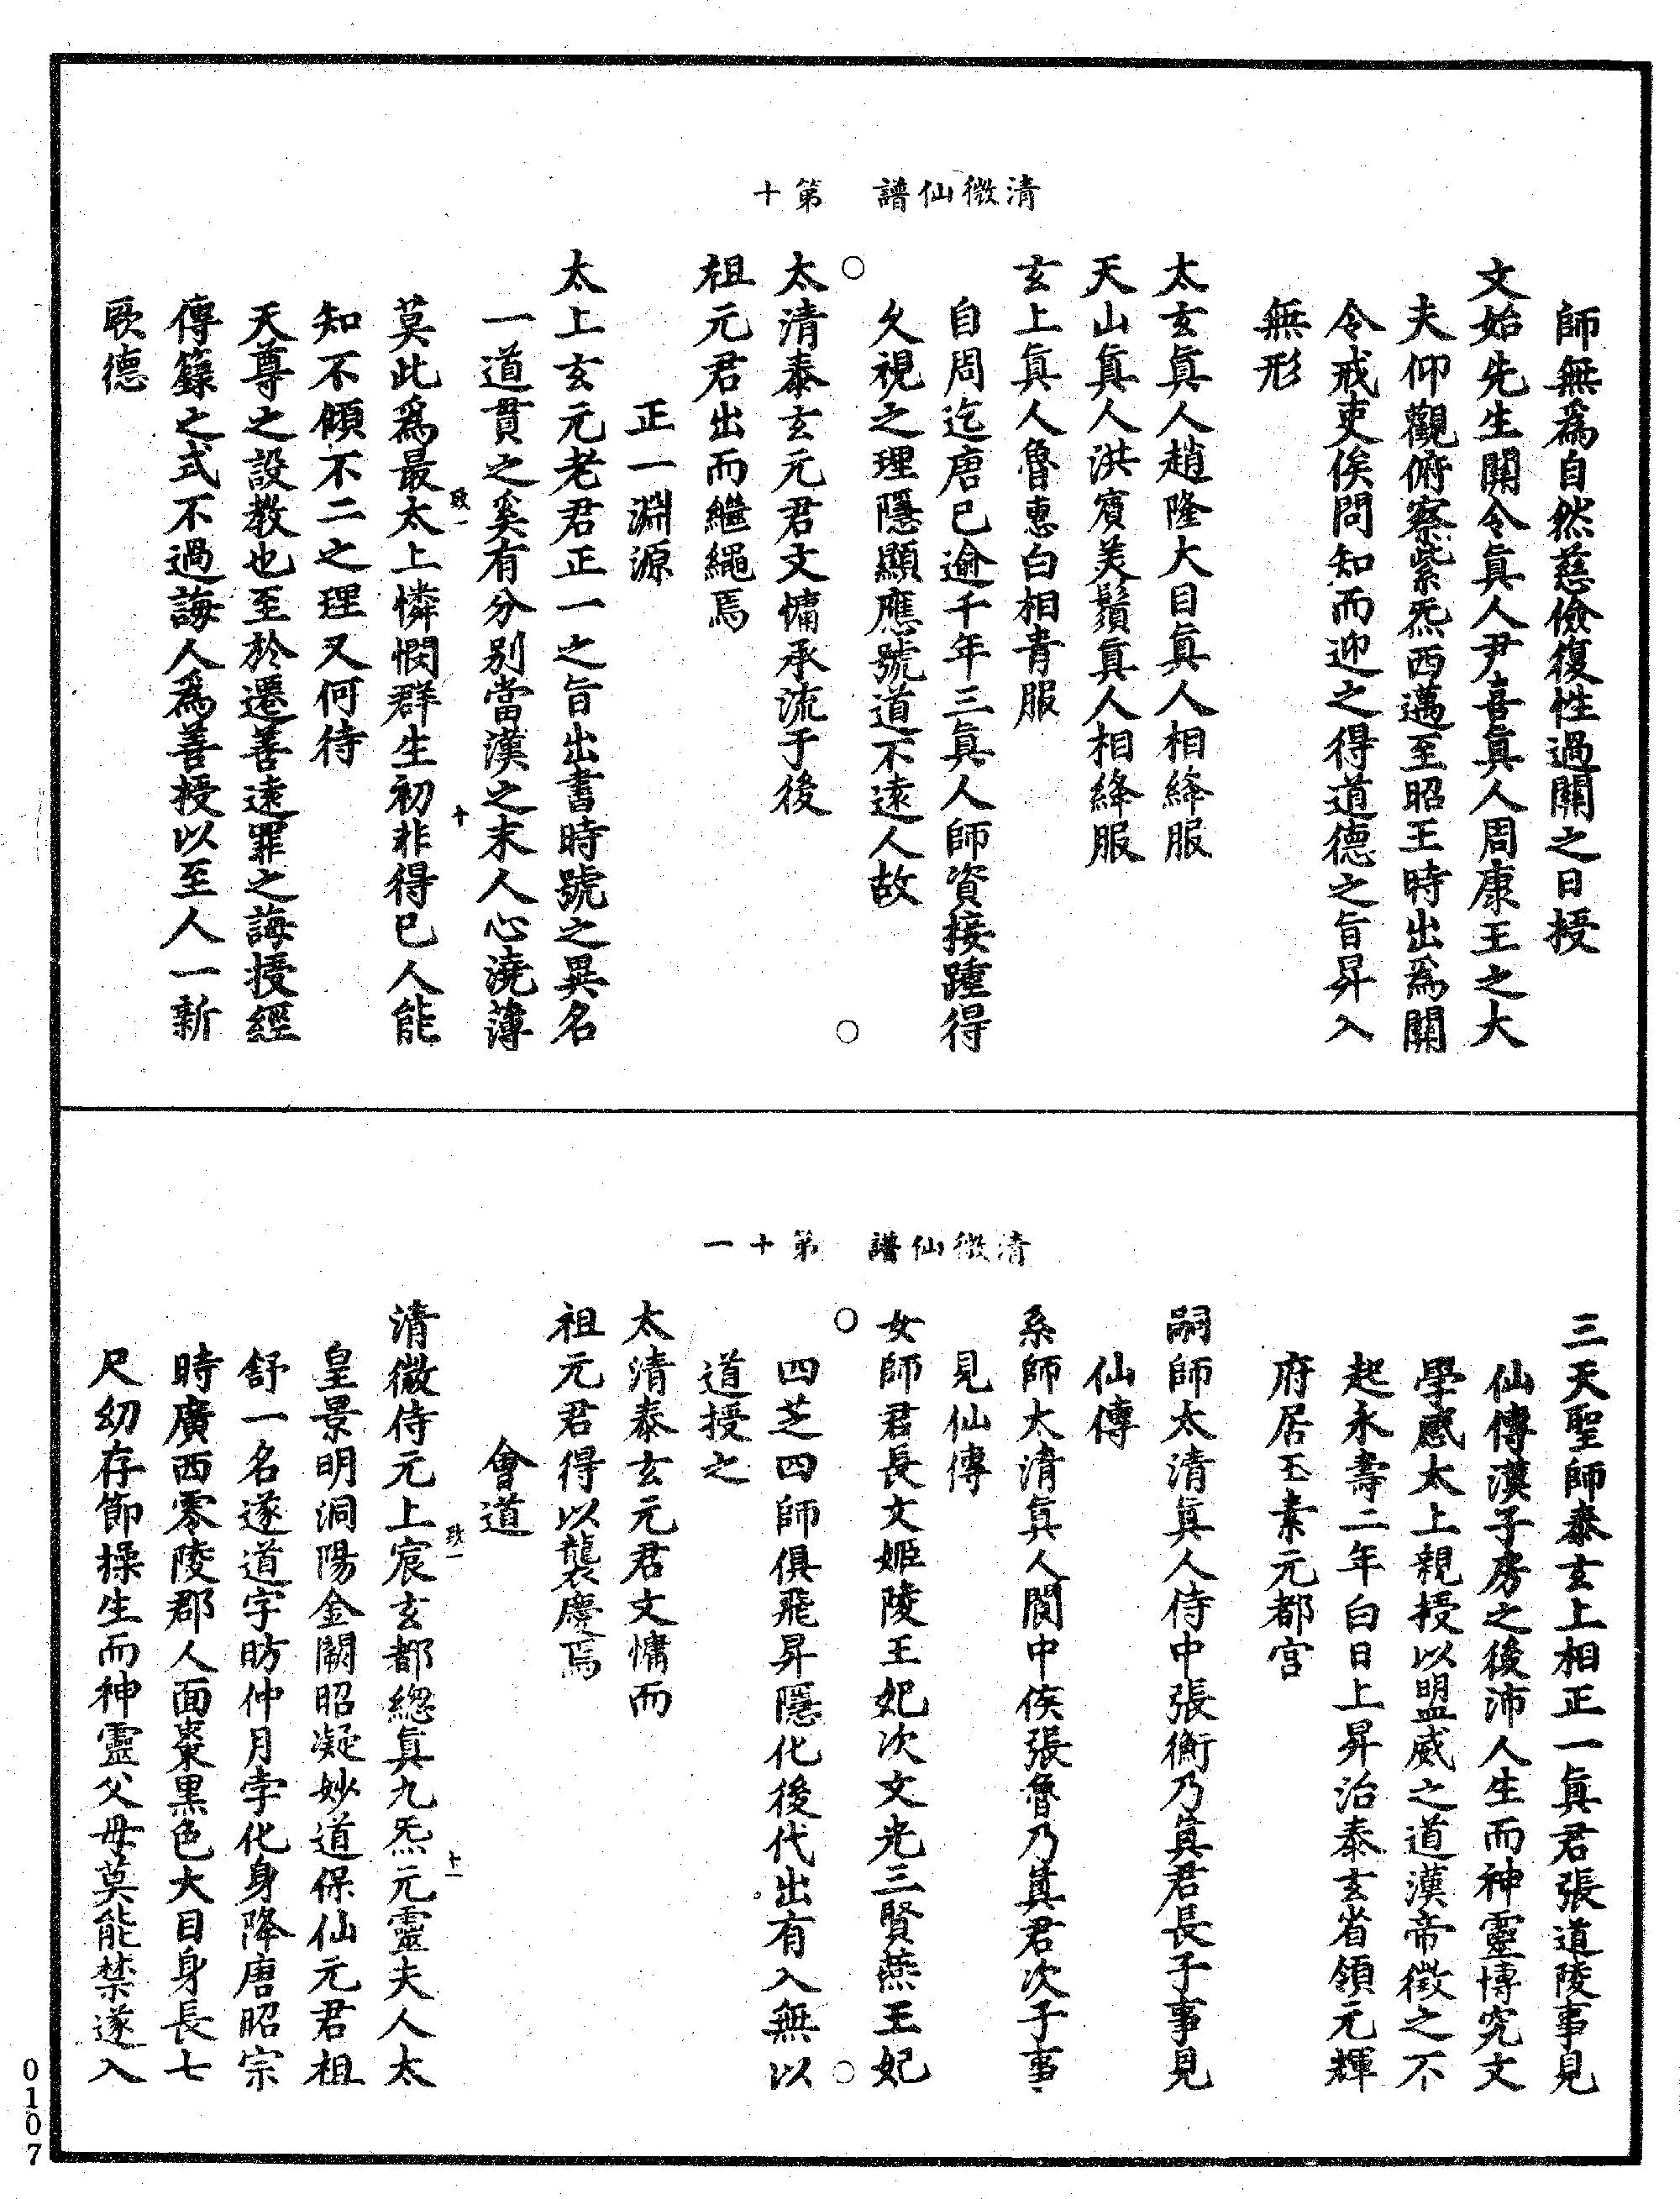 清微仙譜　第十
師無爲自然慈儉復性過關之日授
文始先生關令眞人尹喜眞人周康王之大
夫仰觀俯察紫炁西邁至昭王時出爲關
令戒吏俟問知而迎之得道德之旨昇入
無形
太玄眞人趙隆大目眞人相絳服
天山眞人洪濱美鬚眞人相絳服
玄上眞人魯惠白相青服
自周迄唐已逾千年三眞人師資接踵得
久視之理隱顯應號道不遠人故
○　○
太清泰玄元君文慵承流于後
祖元君出而繼繩焉
正一淵源
太上玄元老君正一之旨出書時號之異名
一道貫之奚有分別當漢之末人心澆薄
致一　十
莫此爲最太上憐憫群生初非得已人能
知不傾不二之理又何待
天尊之設教也至於遷善遠罪之誨授經
傳籙之式不過誨人爲善授以至人一新
厥德
清微仙譜　第十一
三天聖師泰玄上相正一眞君張道陵事見
仙傳漢子房之後沛人生而神靈博究文
學感太上親授以盟威之道漢帝徵之不
起永壽二年白日上昇治泰玄省領元輝
府居玉素元都宮
嗣師太清眞人侍中張衡乃眞君長子事見
仙傳
系師太清眞人閬中侯張魯乃眞君次子事
見仙傳
女師君長文姬陵王妃次文光三賢燕王妃
○　○
四芝四師俱飛昇隱化後代出有入無以
道授之
太清泰玄元君文慵而
祖元君得以襲慶焉
會道
致一　十一
清微侍元上宸玄都總眞九炁元靈夫人太
皇景明洞陽金闕昭凝妙道保仙元君祖
舒一名遂道字昉仲月孛化身降唐昭宗
時廣西零陵郡人面棗黑色大目身長七
尺幼存節操生而神靈父母莫能禁遂入
0107